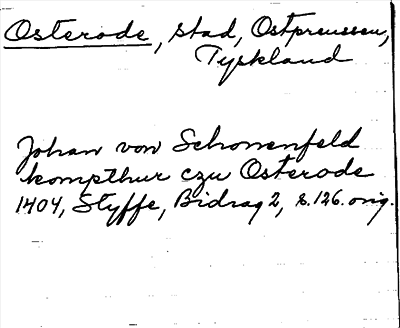 Osterode, stad, Ostpreussen,
Tyskland
Johan von Schonenfeld
kompthur czu Osterode
1404, Styffe, Bidrag 2, s. 126. orig.